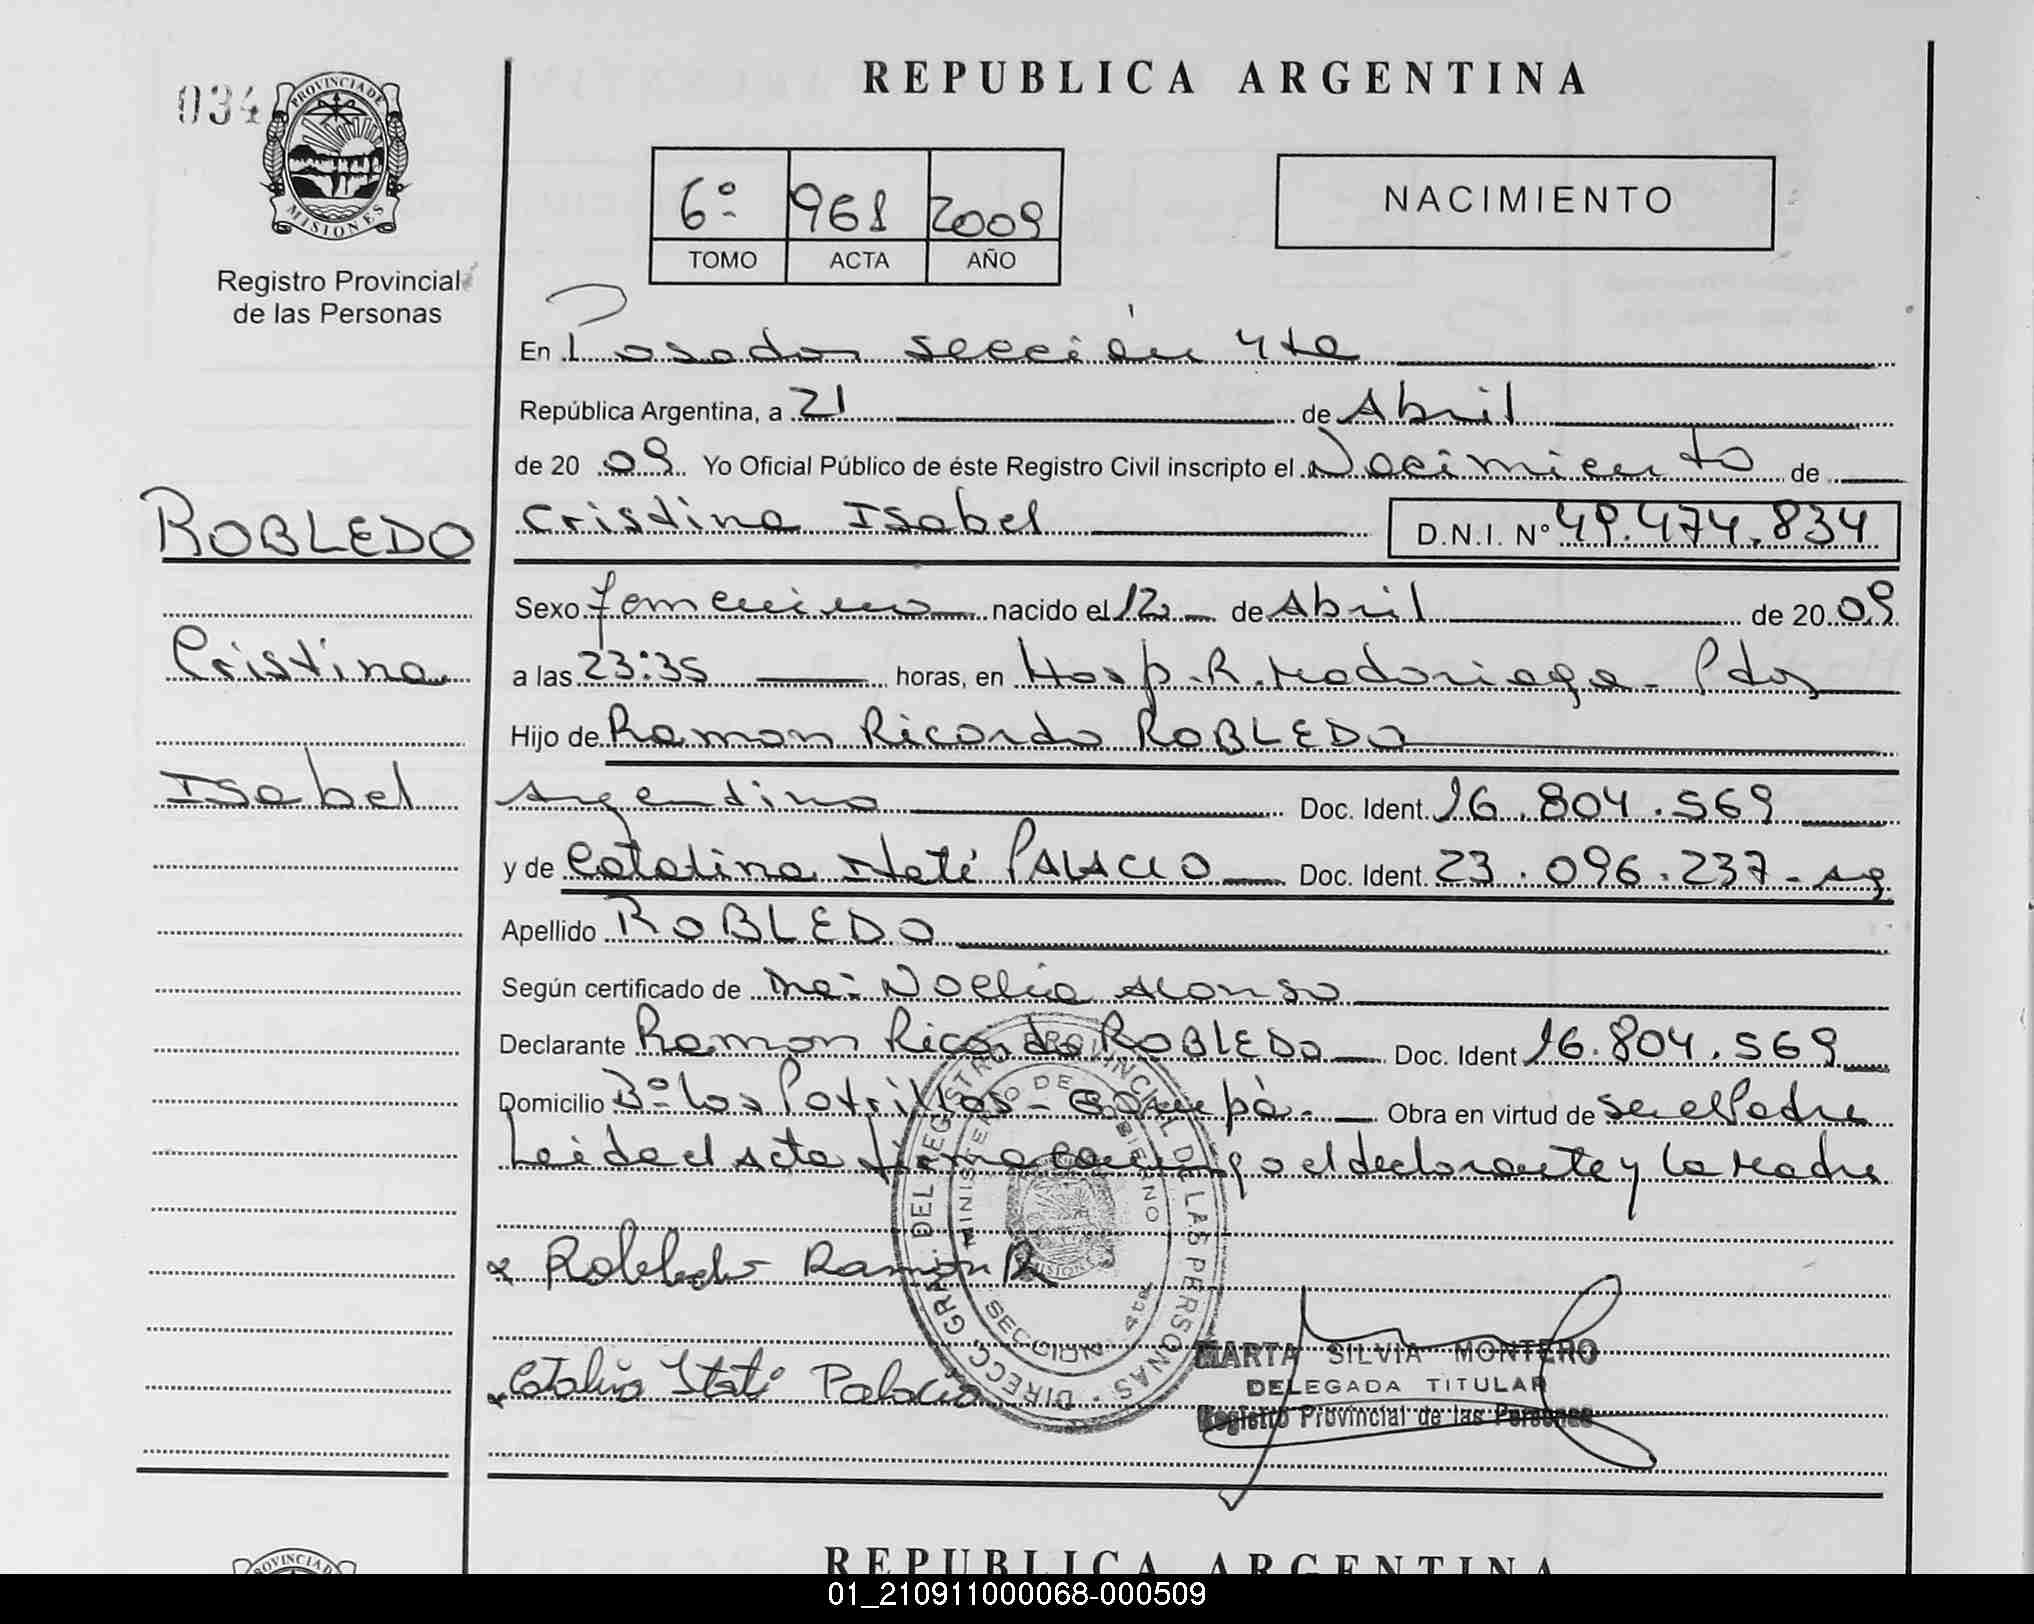 034
PROVINCIA DE
MISIONES
Registro Provincial
de las Personas
REPUBLICA ARGENTINA
6º 968 2009
TOMO ACTA AÑO
NACIMIENTO
En Posadas sección 4ta
República Argentina, a 21 de Abril
de 20 09 Yo Oficial Público de éste Registro Civil inscripto el Nacimiento de
ROBLEDO
Cristina Isabel D.N.I. Nº 49.474.834
Sexo femenino nacido el 12 de Abril de 20 09
Cristina
a las 23:35 horas, en Hosp. R. Madariaga - Pdas
Hijo de Ramon Ricardo ROBLEDO
Isabel
Argentino Doc. Ident. 16.804.569
y de Catalina Itatí PALACIO Doc. Ident. 23.096.237 - Arg
Apellido ROBLEDO
Según certificado de Noelia Alonso
Declarante Ramon Ricardo ROBLEDO Doc. Ident 16.804.569
Domicilio Bº Los Potrillos - Garupá. Obra en virtud de ser el Padre
Leida el Acta firma conmigo el declarante y la Madre
Robledo Ramon R
Catalina Itatí Palacio
DIRECC. GRAL. DEL REGISTRO PROVINCIAL DE LAS PERSONAS
MINISTERIO DE GOBIERNO
MISIONES
SECCION 4ta
MARTA SILVIA MONTERO
DELEGADA TITULAR
Registro Provincial de las Personas
PROVINCIA DE
REPUBLICA ARGENTINA
01_210911000068-000509